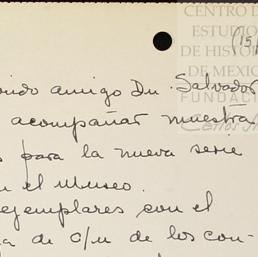 CENTRO D
ESTUDIO
DE HISTOR
DE MEXIC
FUNDACI
(15)
amigo Dn. Salvador
acompañar muestra
para la nueva serie
n el Museo.
ejemplares con el
a de c/u de los con-